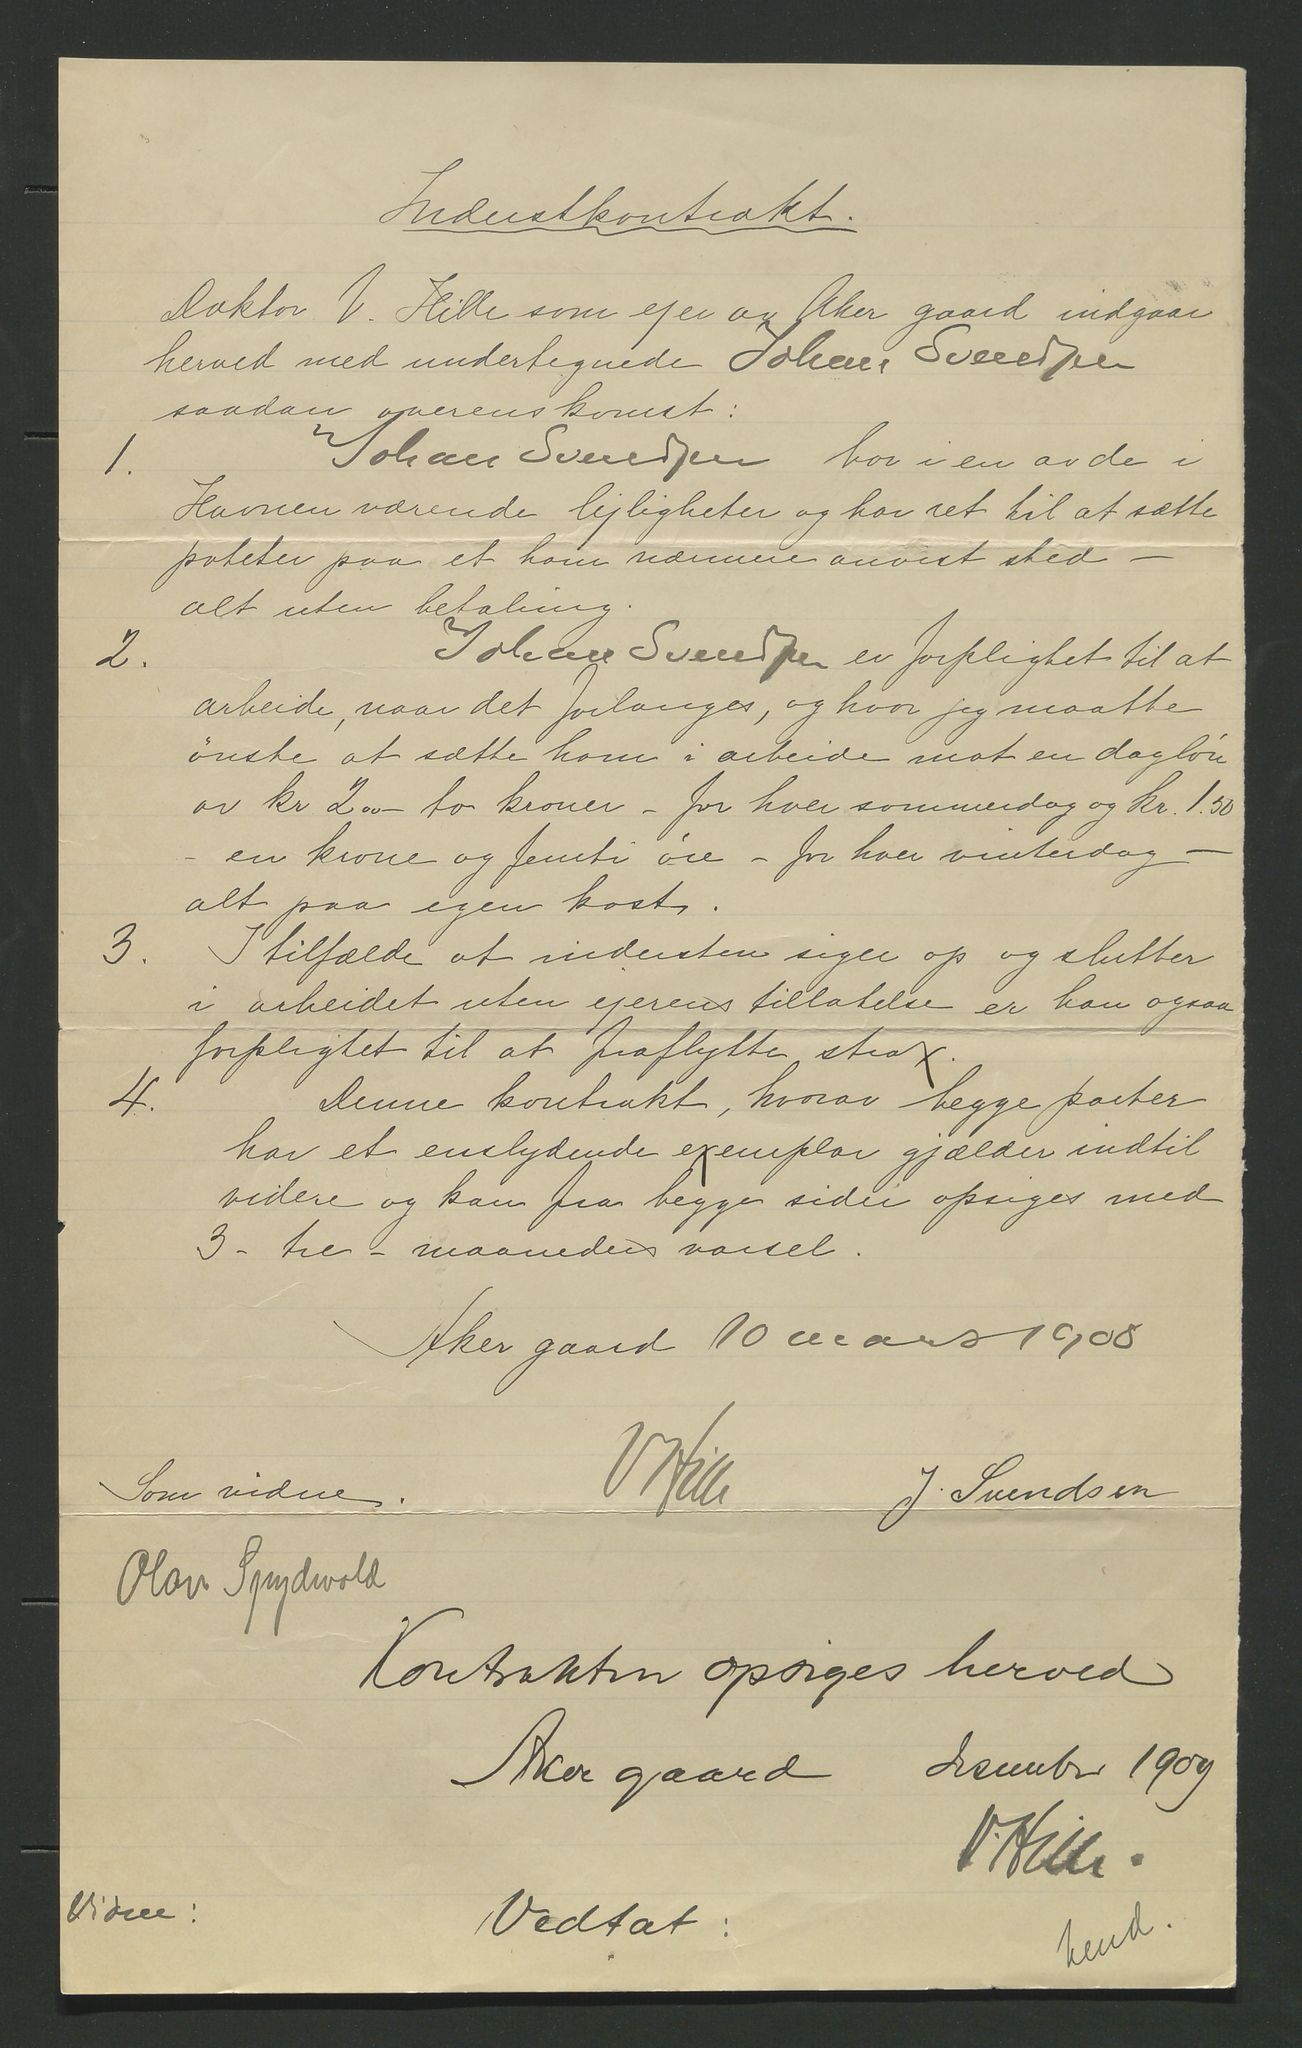 Inderstkontrakt.
Doktor V. Hille som ejer av Aker gaard indgaar
herved med undertegnede Johan Svendsen
saadan overenskomst:
1. Johan Svendsen bor i en av de i
Havnen værende lejligheter og har ret til at sætte
poteter paa et ham nærmere anvist sted —
alt uten betaling.
2. Johan Svendsen er forpligtet til at
arbeide, naar det forlanges, og hvor jeg maatte
önske at sætte ham i arbeide mot en daglön
av kr 2.00 – to kroner – for hver sommerdag og kr. 1.50
– en krone og femti öre – for hver vinterdag —
alt paa egen kost.
3. I tilfælde atindersten siger op og slutter
i arbeidet uten ejerens tillatelse er han ogsaa
forpligtet til at fraflytte strax.
4. Denne kontrakt, hvorav begge parter
har et enslydende exemplar gjælder indtil
videre og kan fra begge sider opsiges med
3 – tre – maaneders varsel.
Aker gaard 10 mars 1908
V Hille J. Svendsen
Som vidne.
Olav Spydevold
Kontrakten opsiges herved
Aker gaard desember 1909
V. Hille.
Vidne: Vedtat:
vend.